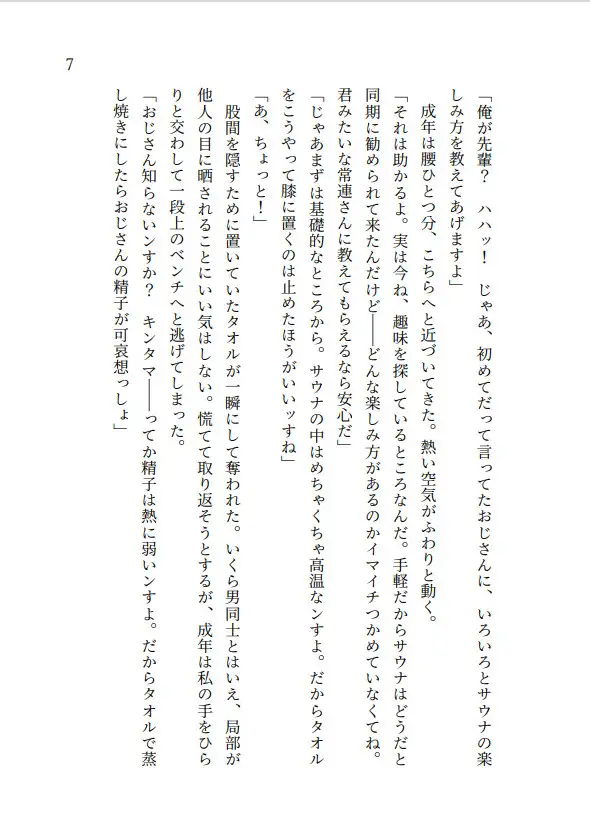 7
「俺が先輩？　ハハッ！　じゃあ、初めてだって言ってたおじさんに、いろいろとサウナの楽
しみ方を教えてあげますよ」
　成年は腰ひとつ分、こちらへと近づいてきた。熱い空気がふわりと動く。
「それは助かるよ。実は今ね、趣味を探しているところなんだ。手軽だからサウナはどうだと
同期に勧められて来たんだけど――どんな楽しみ方があるのかイマイチつかめていなくてね。
君みたいな常連さんに教えてもらえるなら安心だ」
「じゃあまずは基礎的なところから。サウナの中はめちゃくちゃ高温なンすよ。だからタオル
をこうやって膝に置くのは止めたほうがいいッすね」
「あ、ちょっと！」
　股間を隠すために置いていたタオルが一瞬にして奪われた。いくら男同士とはいえ、局部が
他人の目に晒されることにいい気はしない。慌てて取り返そうとするが、成年は私の手をひら
りと交わして一段上のベンチへと逃げてしまった。
「おじさん知らないンすか？　キンタマ――ってか精子は熱に弱いンすよ。だからタオルで蒸
し焼きにしたらおじさんの精子が可哀想っしょ」